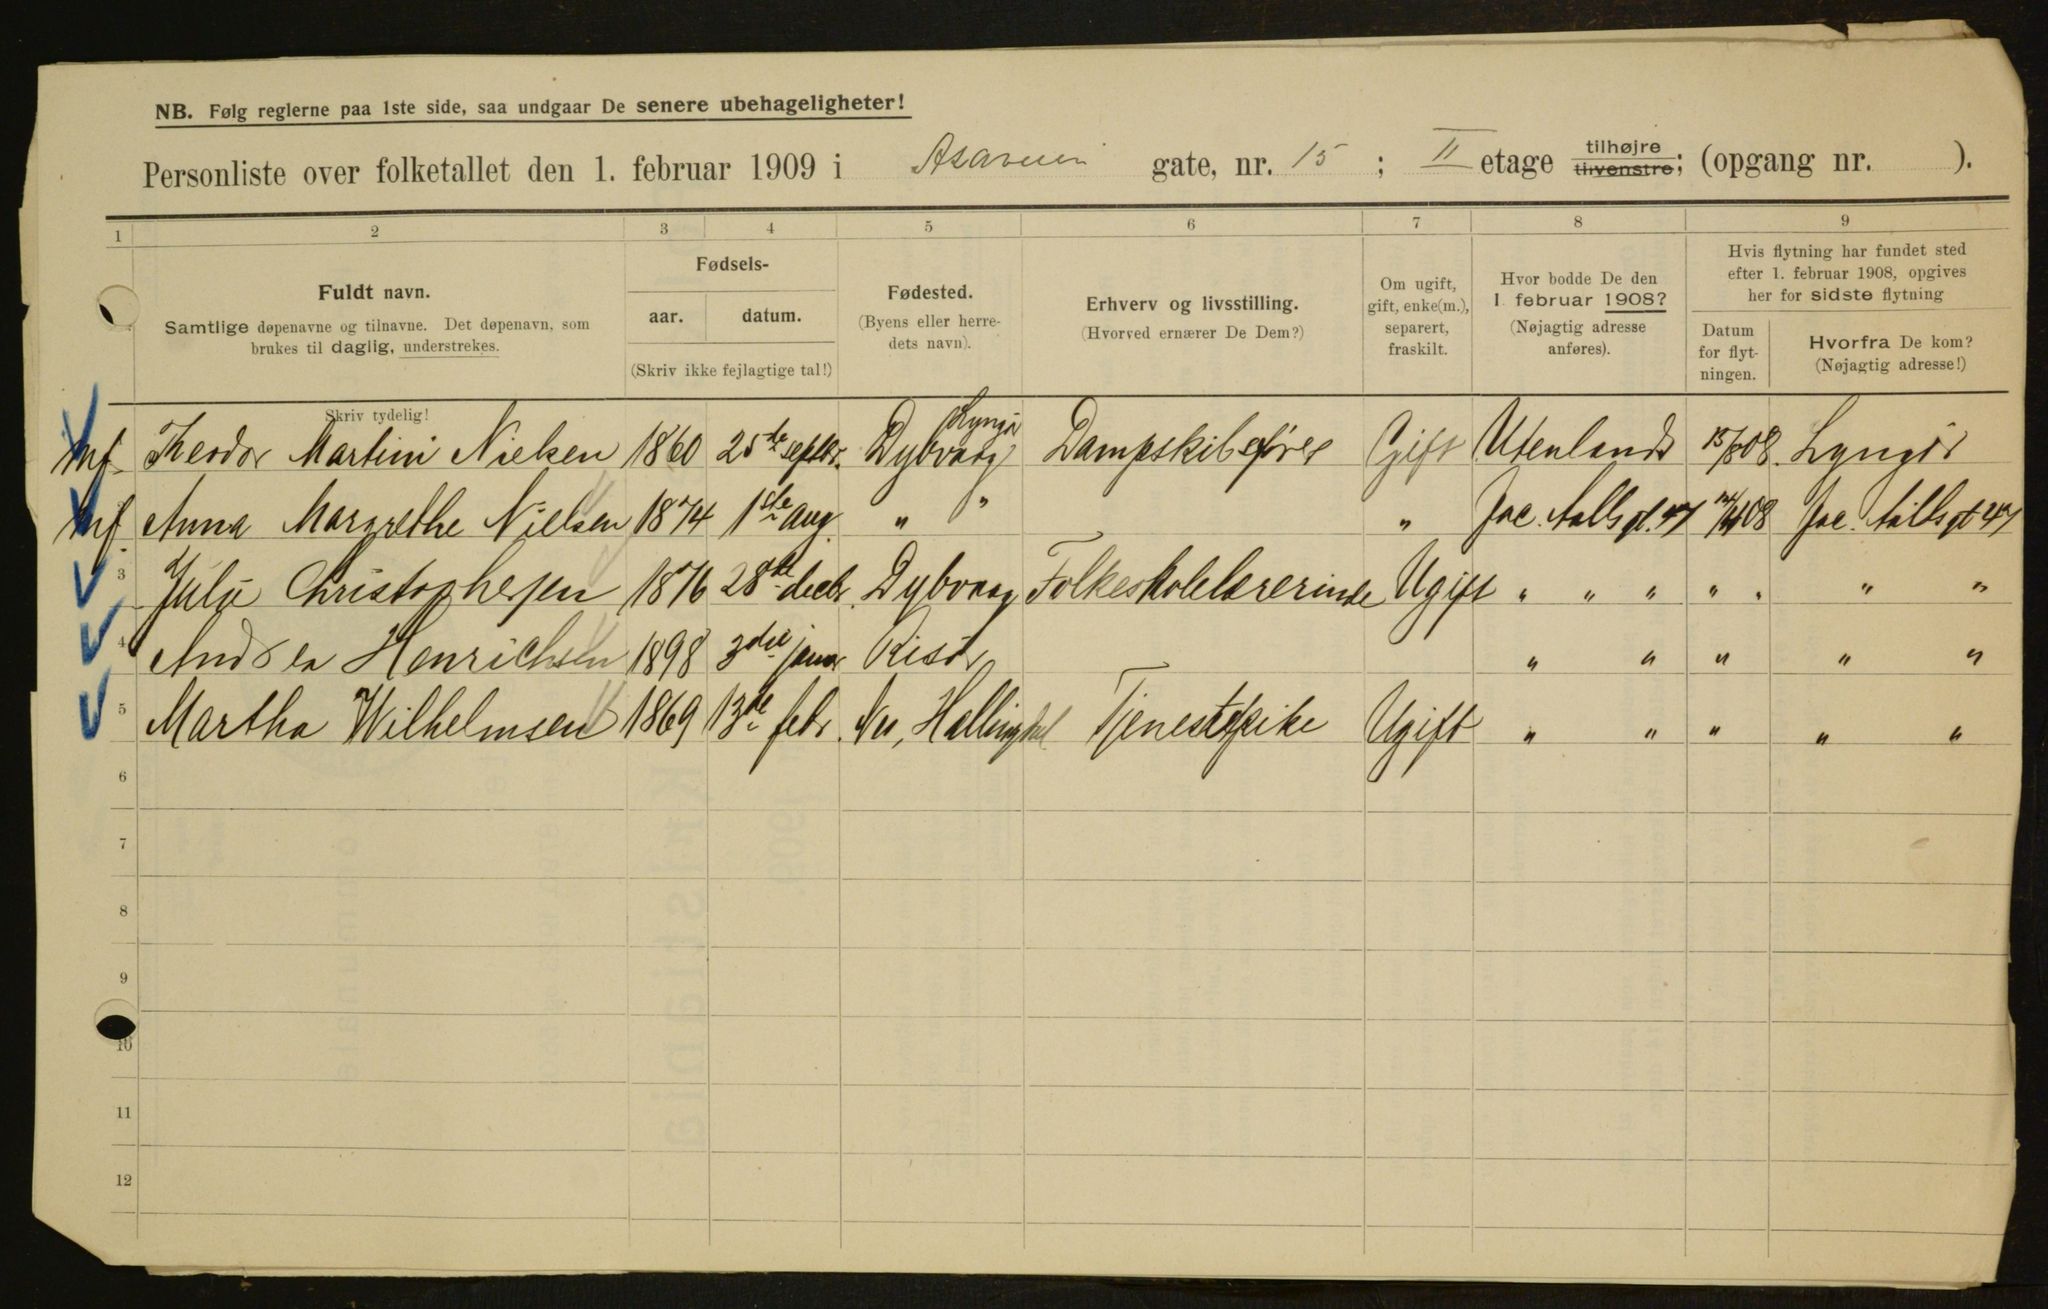 NB. Følg reglerne paa 1ste side, saa undgaar De senere ubehageligheter!
Personliste over folketallet den 1. februar 1909 i Asaveien gate, nr. 15; II etage tilhøjre tilvenstre; (opgang nr. ).
1 2 3 4 5 6 7 8 9
Fuldt navn.
Samtlige døpenavne og tilnavne. Det døpenavn, som
brukes til daglig, understrekes.
Skriv tydelig!
Fødsels-
aar. datum.
(Skriv ikke fejlagtige tal!)
Fødested.
(Byens eller herre-
dets navn).
Erhverv og livsstilling.
(Hvorved ernærer De Dem?)
Om ugift,
gift, enke(m.),
separert,
fraskilt.
Hvor bodde De den
1. februar 1908?
(Nøjagtig adresse
anføres).
Hvis flytning har fundet sted
efter 1. februar 1908, opgives
her for sidste flytning
Datum
for flyt-
ningen.
Hvorfra De kom?
(Nøjagtig adresse!)
mf Theodor Martini Nielsen 1860 25de septbr. Dybvaag Lyngør Dampskibsfører Gift Utenlands 15/8 08. Lyngør
mf Anna Margrethe Nielsen 1874 1ste aug. " " " Jac. Aalls gt. 47 14/4 08 Jac. Aalls gt 47
3 Julie Christophersen 1876 28de decbr. Dybvaag Folkeskolelærerinde Ugift " " " " " " "
4 Andrea Henrichsen 1898 3die januar Risør " " " " "
5 Martha Wilhelmsen 1869 13de febr. Nes, Hallingdal Tjenestepike Ugift " " " " "
6
7
8
9
10
11
12